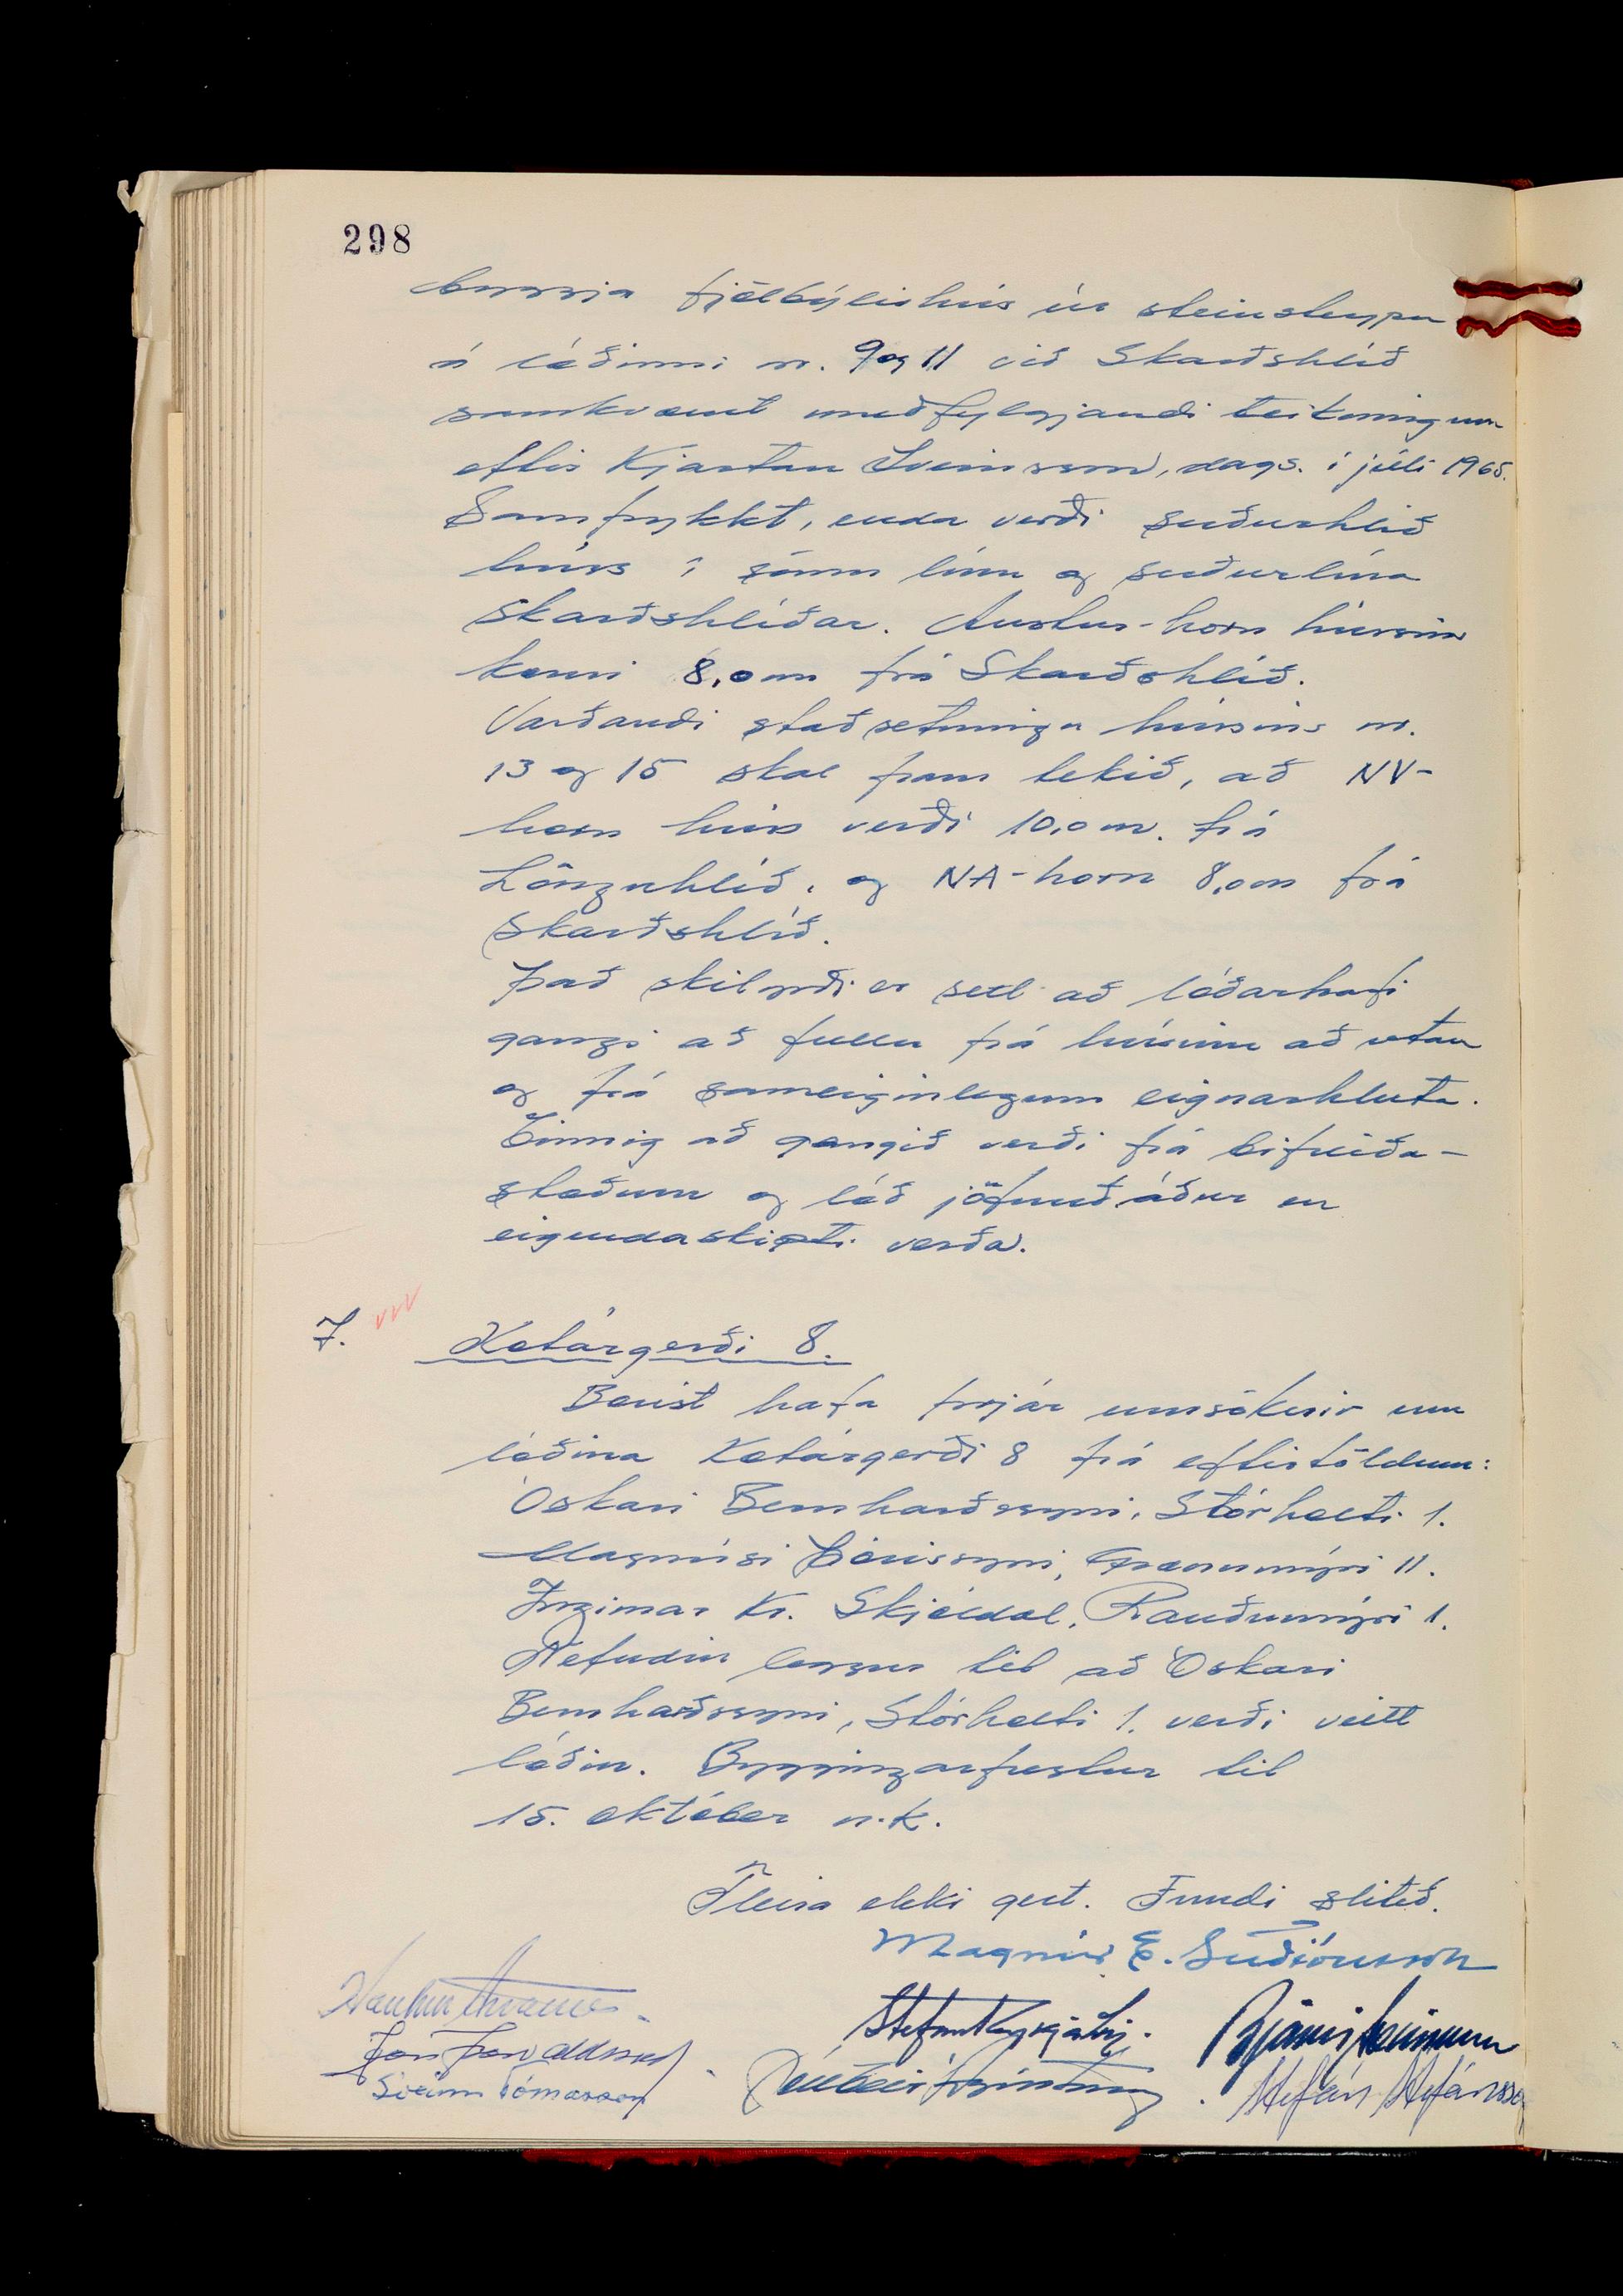 298
byggja fjölbýlishús úr steinsteypu
á lóðinni nr. 9 og 11 við Skarðshlíð
samkvæmt meðfylgjandi teikningum
eftir Kjartan Sveinsson, dags. í júlí 1965.
Samþykkt, enda verði suðurhlið
húss í sömu línu og suðurlína
Skarðshlíðar. Austur-horn hússins
komi 8,0 m frá Skarðshlíð.
Varðandi staðsetningu hússins nr.
13 og 15 skal fram tekið, að NV-
horn húss verði 10,0 m. frá
Lönguhlíð, og NA-horn 8,0 m frá
Skarðshlíð.
Það skilyrði er sett að lóðarhafi
gangi að fullu frá húsinu að utan
og frá sameiginlegum eignarhluta.
Einnig að gengið verði frá bifreiða-
stæðum og lóð jöfnuð áður en
eigendaskipti verða.
7.
Kotárgerði 8.
Borist hafa þrjár umsóknir um
lóðina Kotárgerði 8 frá eftirtöldum:
Óskari Bernharðssyni, Stórholti 1.
Magnúsi Þórissyni, Grænumýri 11.
Ingimar Kr. Skjóldal, Rauðumýri 1.
Nefndin leggur til að Óskari
Bernharðssyni, Stórholti 1. verði veitt
lóðin. Byggingarfrestur til
15. október n.k.
Fleira ekki gert. Fundi slitið.
Magnús E. Guðjónsson
Haukur Árnason
Stefán Reykjalín. Bjarni Einarsson
Jón Þorvaldsson
Stefán Stefánsson
Sveinn Tómasson